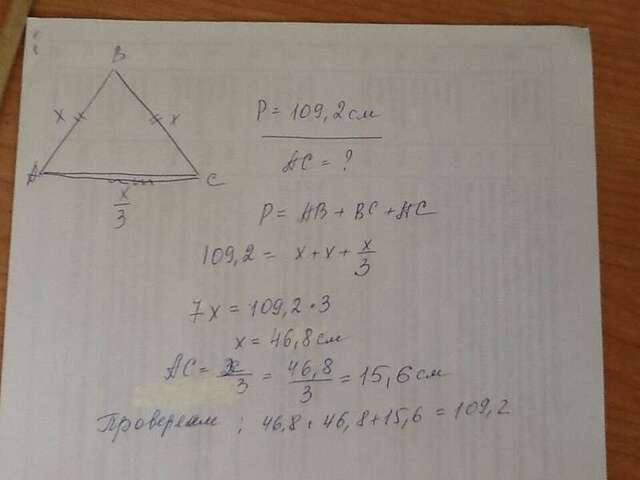 B
x x
A C
x/3
P = 109,2 см
AC = ?
P = AB + BC + AC
109,2 = x + x + x/3
7x = 109,2 · 3
x = 46,8 см
AC = x/3 = 46,8/3 = 15,6 см
Проверяем : 46,8 + 46,8 + 15,6 = 109,2